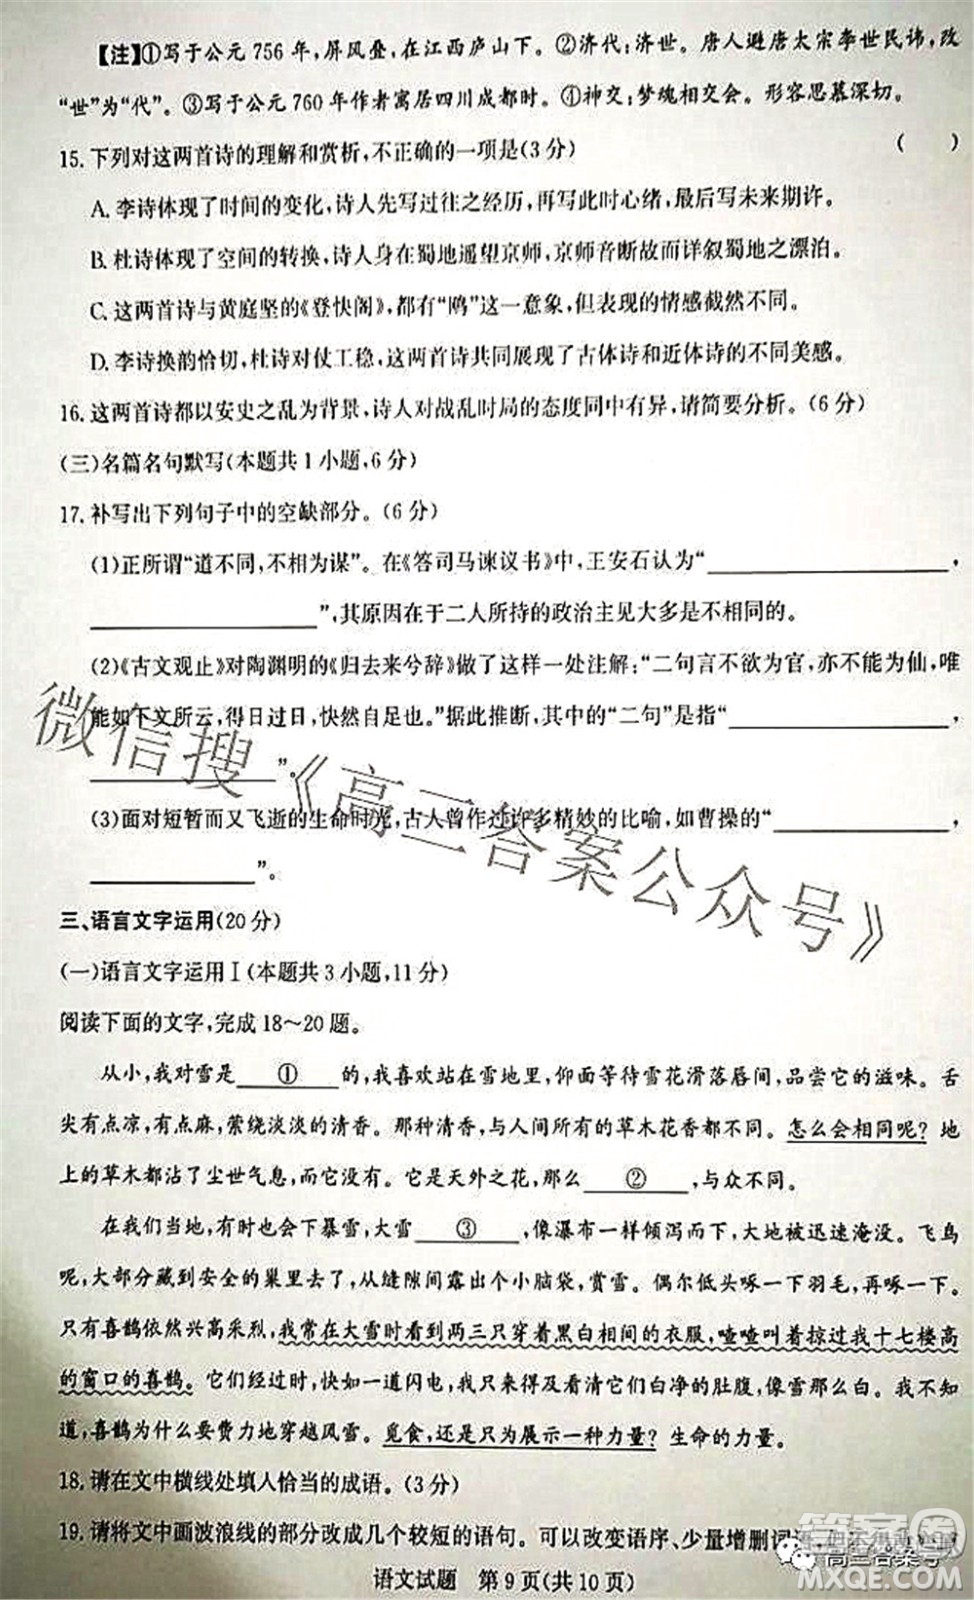 【注】①写于公元756年,屏风叠,在江西庐山下。②济代:济世。唐人避唐太宗李世民讳,改
“世”为“代”。③写于公元760年作者寓居四川成都时。④神交:梦魂相交会。形容思慕深切。
15.下列对这两首诗的理解和赏析,不正确的一项是(3分) ( )
A.李诗体现了时间的变化,诗人先写过往之经历,再写此时心绪,最后写未来期许。
B.杜诗体现了空间的转换,诗人身在蜀地遥望京师,京师音断故而详叙蜀地之漂泊。
C.这两首诗与黄庭坚的《登快阁》,都有“鸥”这一意象,但表现的情感截然不同。
D.李诗换韵恰切,杜诗对仗工稳,这两首诗共同展现了古体诗和近体诗的不同美感。
16.这两首诗都以安史之乱为背景,诗人对战乱时局的态度同中有异,请简要分析。(6分)
(三)名篇名句默写(本题共1小题,6分)
17.补写出下列句子中的空缺部分。(6分)
(1)正所谓“道不同,不相为谋”。在《答司马谏议书》中,王安石认为“____,
____”,其原因在于二人所持的政治主见大多是不相同的。
(2)《古文观止》对陶渊明的《归去来兮辞》做了这样一处注解:“二句言不欲为官,亦不能为仙,唯
能如下文所云,得日过日,快然自足也。”据此推断,其中的“二句”是指“____,
____”。
(3)面对短暂而又飞逝的生命时光,古人曾作过许多精妙的比喻,如曹操的“____,
____”。
微信搜《高三答案公众号》
三、语言文字运用(20分)
(一)语言文字运用Ⅰ(本题共3小题,11分)
阅读下面的文字,完成18～20题。
从小,我对雪是 ① 的,我喜欢站在雪地里,仰面等待雪花滑落唇间,品尝它的滋味。舌
尖有点凉,有点麻,萦绕淡淡的清香。那种清香,与人间所有的草木花香都不同。怎么会相同呢?地
上的草木都沾了尘世气息,而雪花没有。它是天外之花,那么 ② ,与众不同。
在我们当地,有时也会下暴雪,大雪 ③ ,像瀑布一样倾泻而下,大地被迅速淹没。飞鸟
呢,大部分藏到安全的巢里去了,从缝隙间露出个小脑袋,赏雪。偶尔低头啄一下羽毛,再啄一下。
只有喜鹊依然兴高采烈,我常在大雪时看到两三只穿着黑白相间的衣服,喳喳叫着掠过我十七楼高
的窗口的喜鹊。它们经过时,快如一道闪电,我只来得及看清它们白净的肚腹,像雪那么白。我不知
道,喜鹊为什么要费力地穿越风雪。觅食,还是只为展示一种力量?生命的力量。
18.请在文中横线处填入恰当的成语。(3分)
19.请将文中画波浪线的部分改成几个较短的语句。可以改变语序、少量增删词
语文试题 第9页(共10页)
高三答案号
答案圈
MXQE.COM